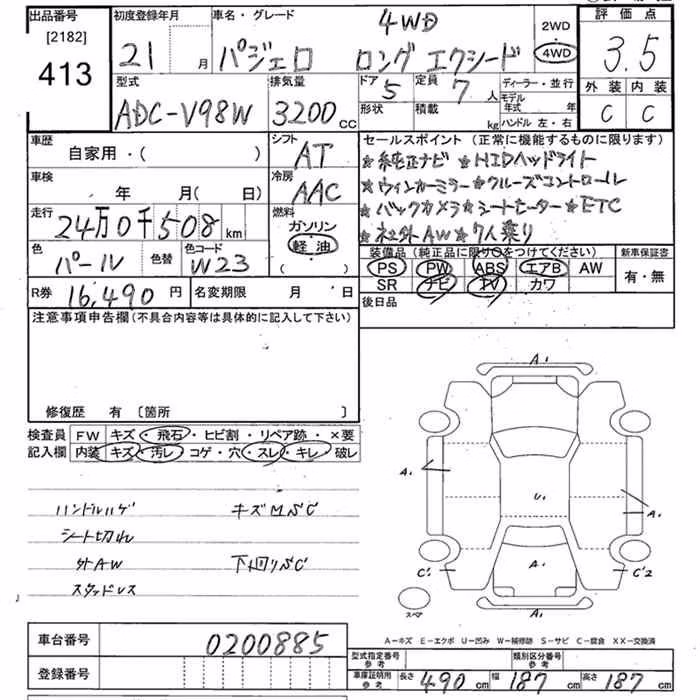 出品番号 初度登録年月 車名・グレード 4WD 2WD 評価点
[2182] 21 月 パジェロ ロング エクシード 4WD 3.5
413
型式 排気量 ドア 5 定員 7 人 ディーラー・並行 外装 内装
ADC-V98W 3200 cc 形状 積載 kg モデル年式 年 C C
ハンドル 左・右
車歴 シフト セールスポイント (正常に機能するものに限ります)
自家用・( ) AT ★純正ナビ ★HIDヘッドライト
車検 冷房 ★ウィンカーミラー ★クルーズコントロール
年 月( 日) AAC ★バックカメラ ★シートヒーター ★ETC
走行 燃料 ★社外AW ★7人乗り
24万0千508 km ガソリン
軽油
( )
色 色替 色コード 装備品 (純正品に限り○をつけてください) 新車保証書
パール W23 PS PW ABS エアB AW 有・無
SR ナビ TV カワ
R券 16,490 円 名変期限 月 日 後日品
注意事項申告欄 (不具合内容等は具体的に記入して下さい)
修復歴 有 [箇所 ]
検査員 FW キズ・飛石・ヒビ割・リペア跡・×要
記入欄 内装 キズ・汚レ・コゲ・穴・スレ・キレ・破レ
A1
A1
U1
A1
A1
C1
C2
A1
スペア
ハンドルハゲ キズM5C
シート切れ
外AW 下回り5C
スタッドレス
A-キズ E-エクボ U-凹み W-補修跡 S-サビ C-腐食 XX-交換済
車台番号 0200885
型式指定番号 参考 類別区分番号 参考
登録番号 車庫証明用 参考 長さ 490 cm 幅 187 cm 高さ 187 cm